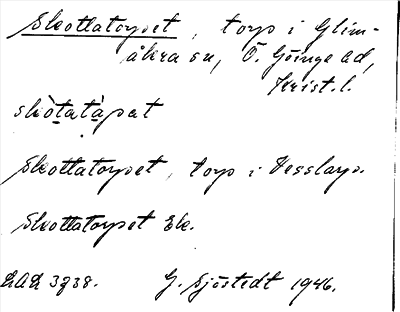 Skottatorpet, torp i Glim-
åkra sn, Ö. Göinge hd,
Krist. l.
skòtatàpat
Skottatorpet, torp i Vesslarp.
Skottatorpet Ek.
LAL 3738. G. Sjöstedt 1946.